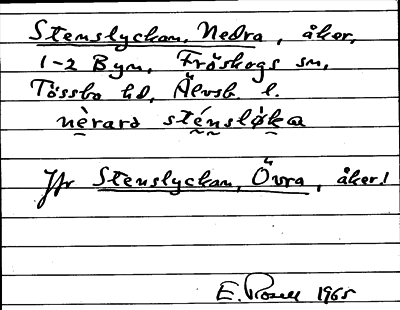 Stenslyckan, Nedra, åker,
1-2 Byn, Fröskogs sn,
Tössbo hd, Älvsb. l.
nèrarə sténsløka
Jfr Stenslyckan, Övra, åker!
E. Rosell 1965